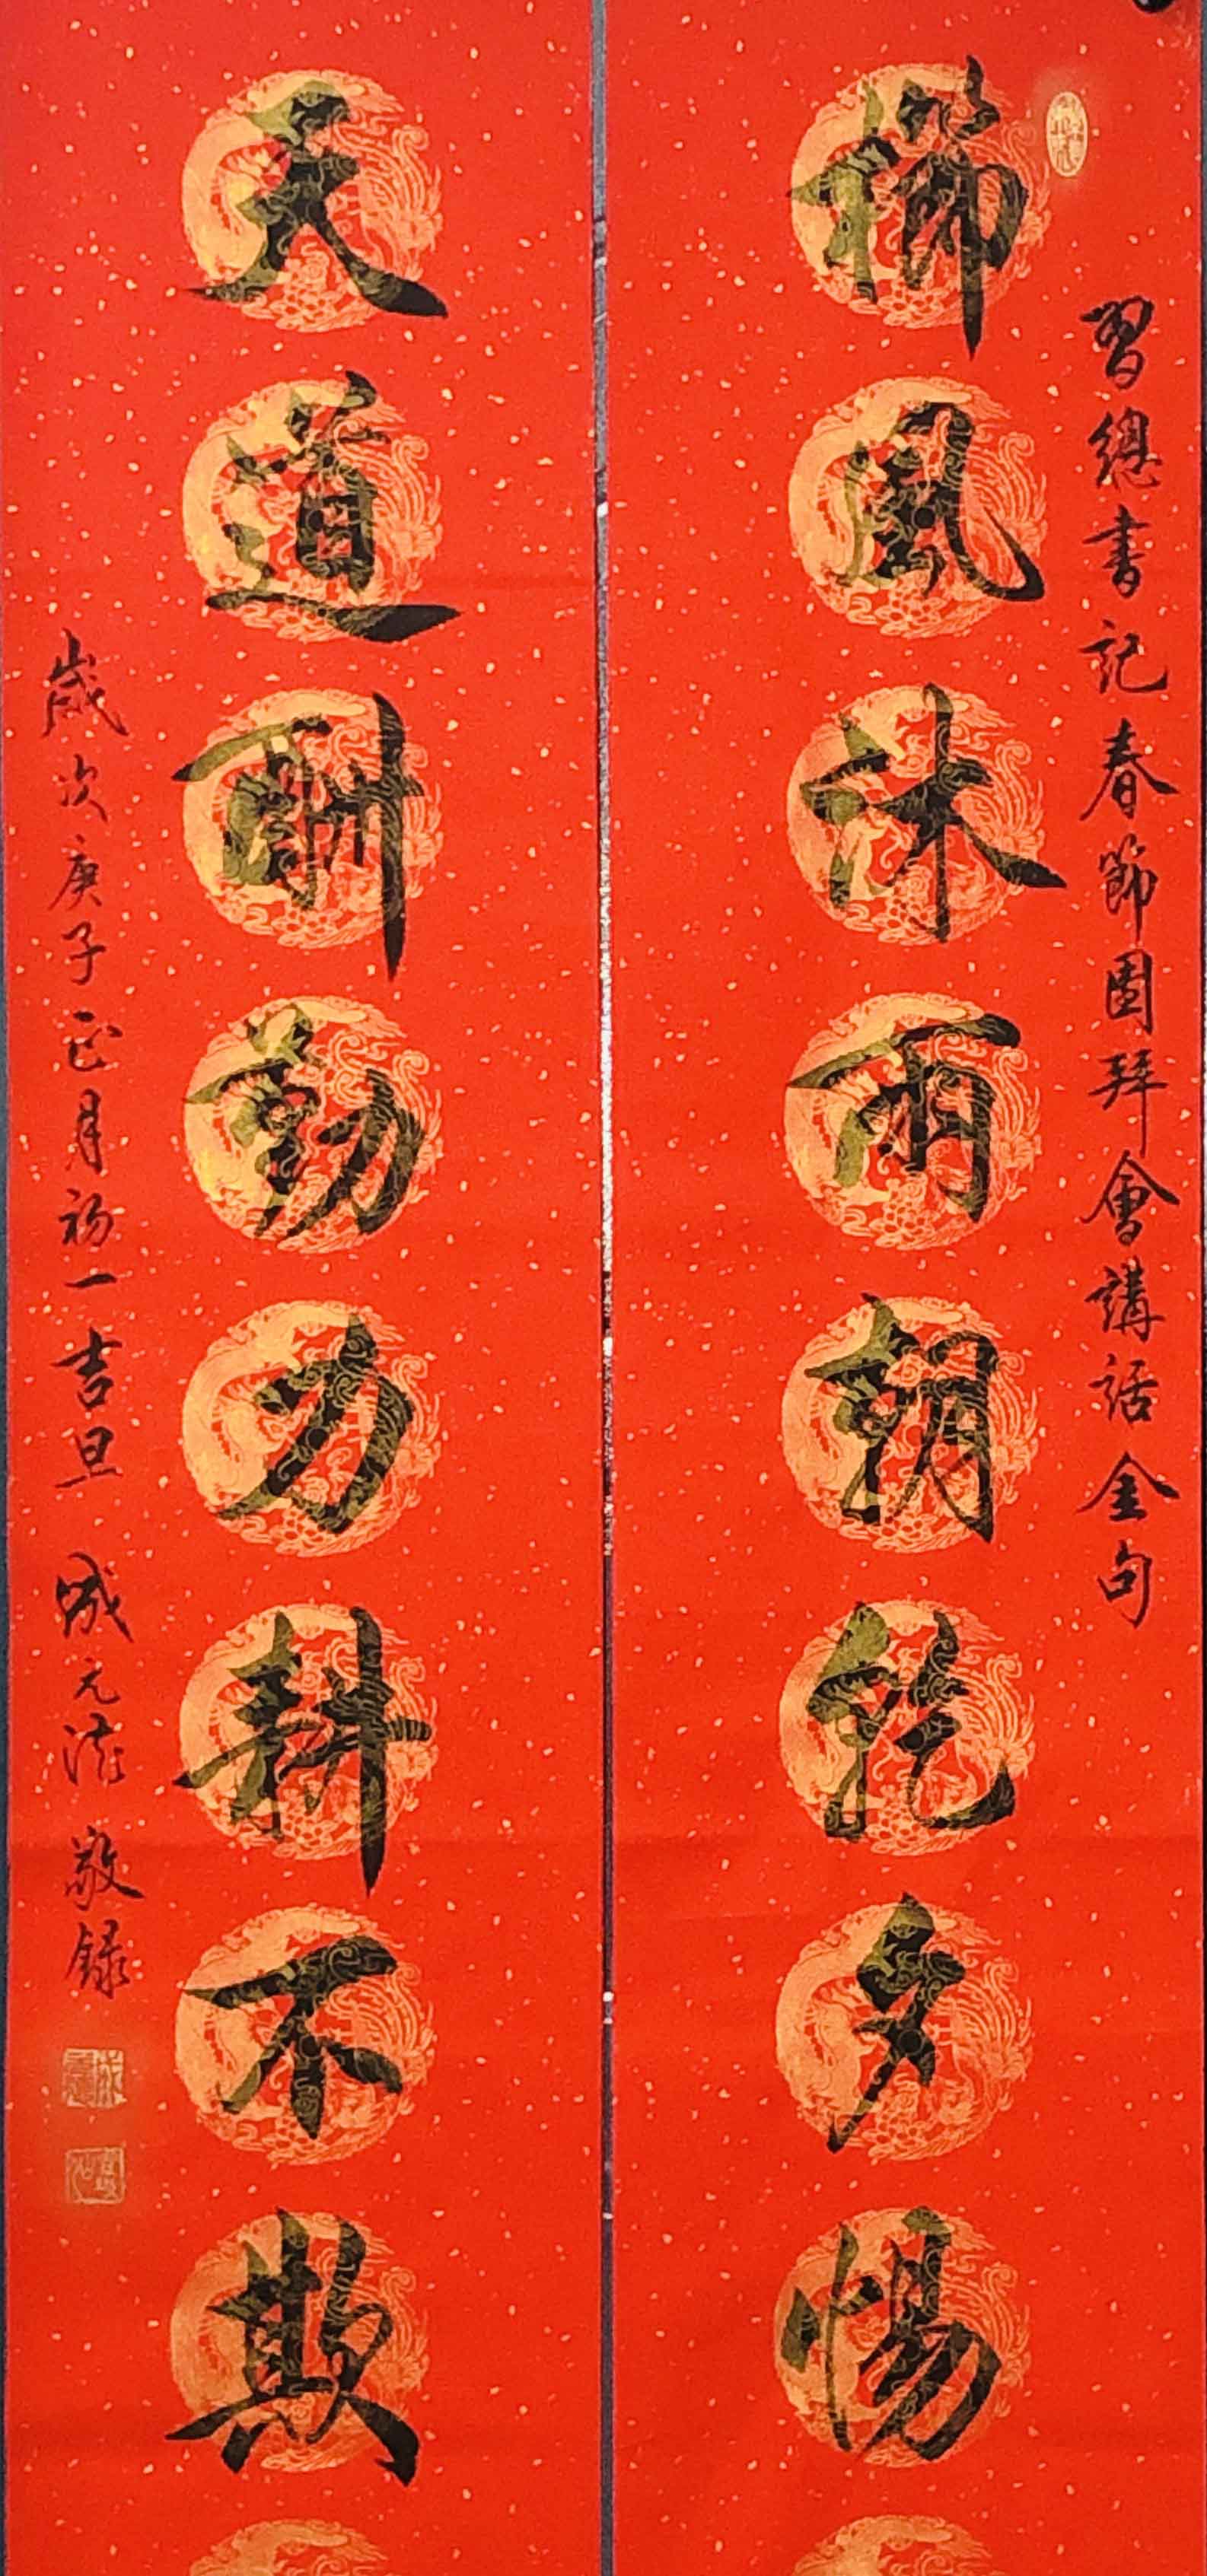 習總書記春節團拜會講話金句
櫛風沐雨朝乾夕惕
天道酬勤力耕不欺
歲次庚子正月初一吉旦 成元 敬録